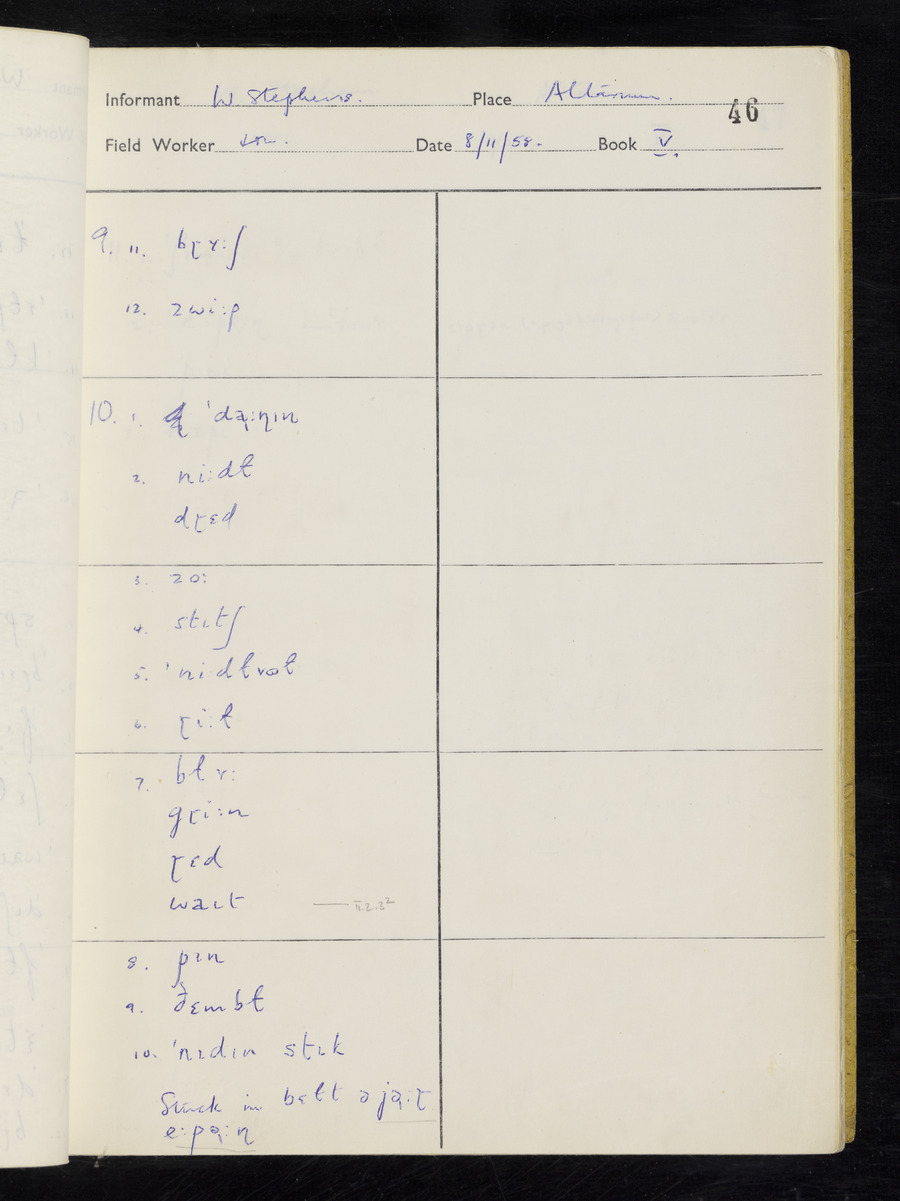 Informant W Stephens. Place Altarnun.
46
Field Worker Date 8/11/58. Book V.
9. 11. bɽʏ:ʃ
12. zwi:p
10. 1. 'dɑ̨:ɳɪn
2. ni:dɫ
dɽɛd
3. zo:
4. stɪtʃ
5. 'nidɫvʊt
6. ɽi:ɫ
7. bɫʏ:
gɽi:n
ɽɛd
waɪt — II.2.3²
8. pɪn
9. ðɛmbɫ
10. 'nɪdɪn stɪk
Stuck in bɛɫt ə jɑ̨:ɽ
e:pɑ̨:ɳ